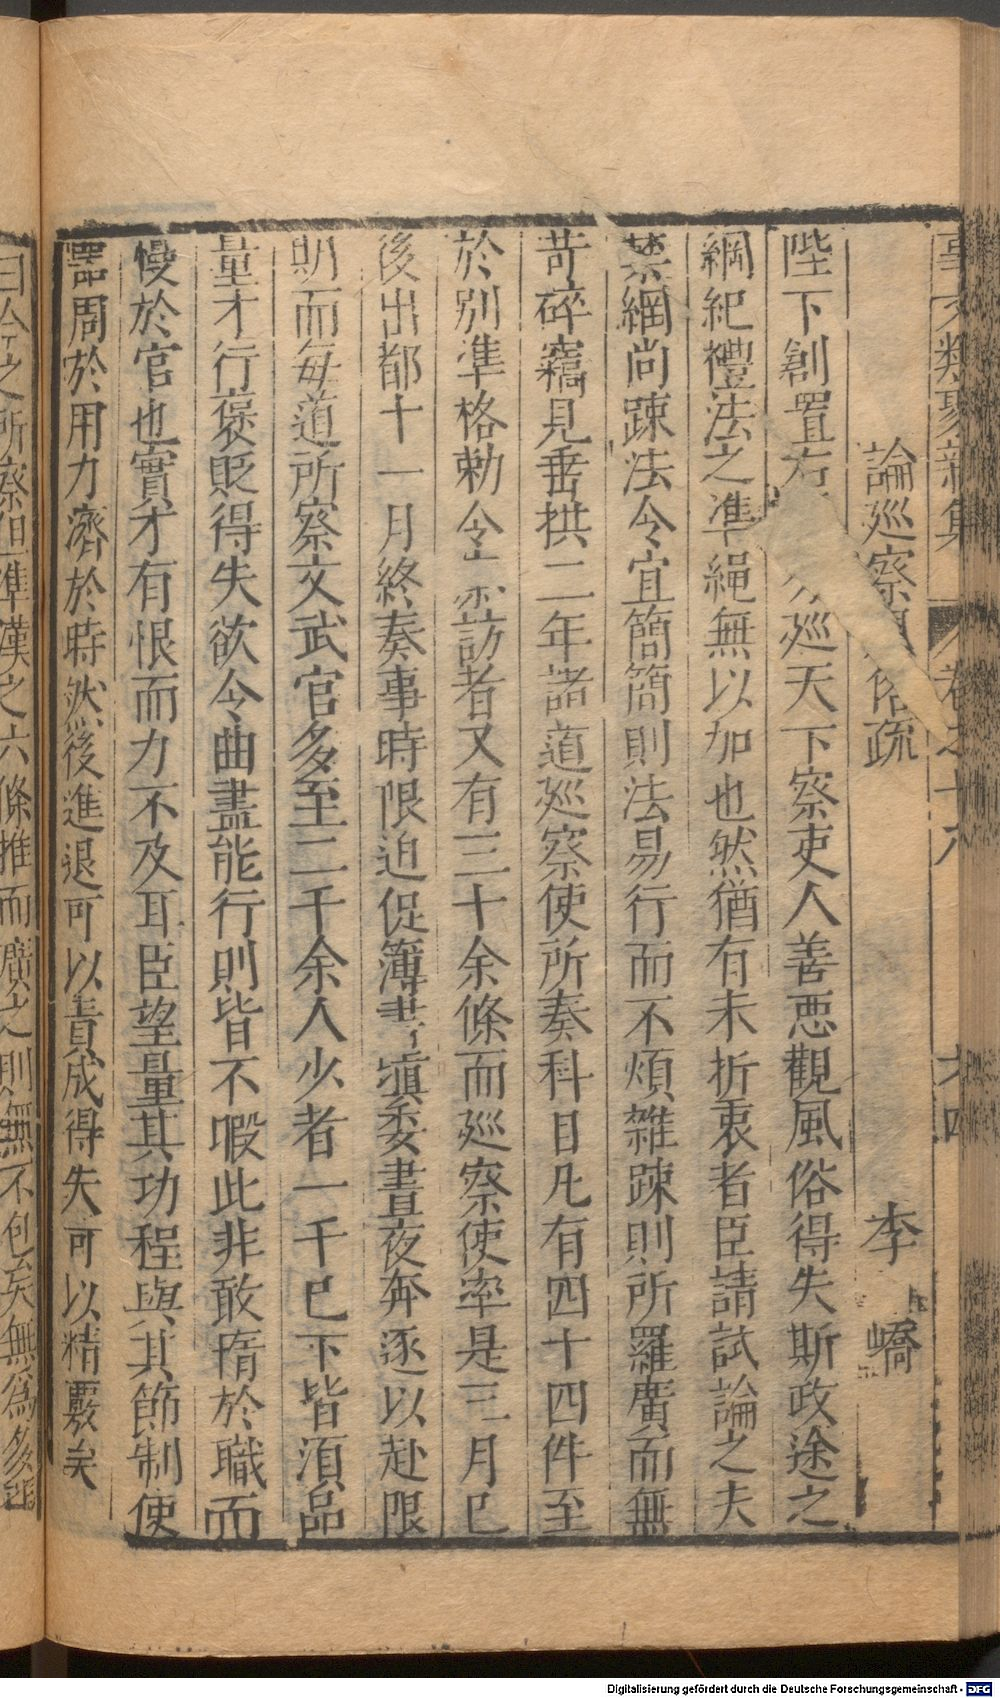 事文類聚新集 卷之十八 六四
論巡察風俗疏 李嶠
陛下創置右 分巡天下察吏人善惡觀風俗得失斯政途之
綱紀禮法之準繩無以加也然猶有未折衷者臣請試論之夫
禁網尚踈法令宜簡簡則法易行而不煩雜踈則所羅廣而無
苛碎竊見垂拱二年諸道巡察使所奏科目凡有四十四件至
於别準格勑令 訪者又有三十余條而巡察使率是三月已
後出都十一月終奏事時限迫促簿書填委晝夜奔逐以赴限
期而每道所察文武官多至二千余人少者一千已下皆須品
量才行褒貶得失欲令曲盡能行則皆不暇此非敢隋於職而
慢於官也實才有恨而力不及耳臣望量其功程與其節制使
器周於用力濟於時然後進退可以責成得失可以精覈矣
曰今之所察但準漢之六條推而廣之則無不包矣無爲多
Digitalisierung gefördert durch die Deutsche Forschungsgemeinschaft - DFG